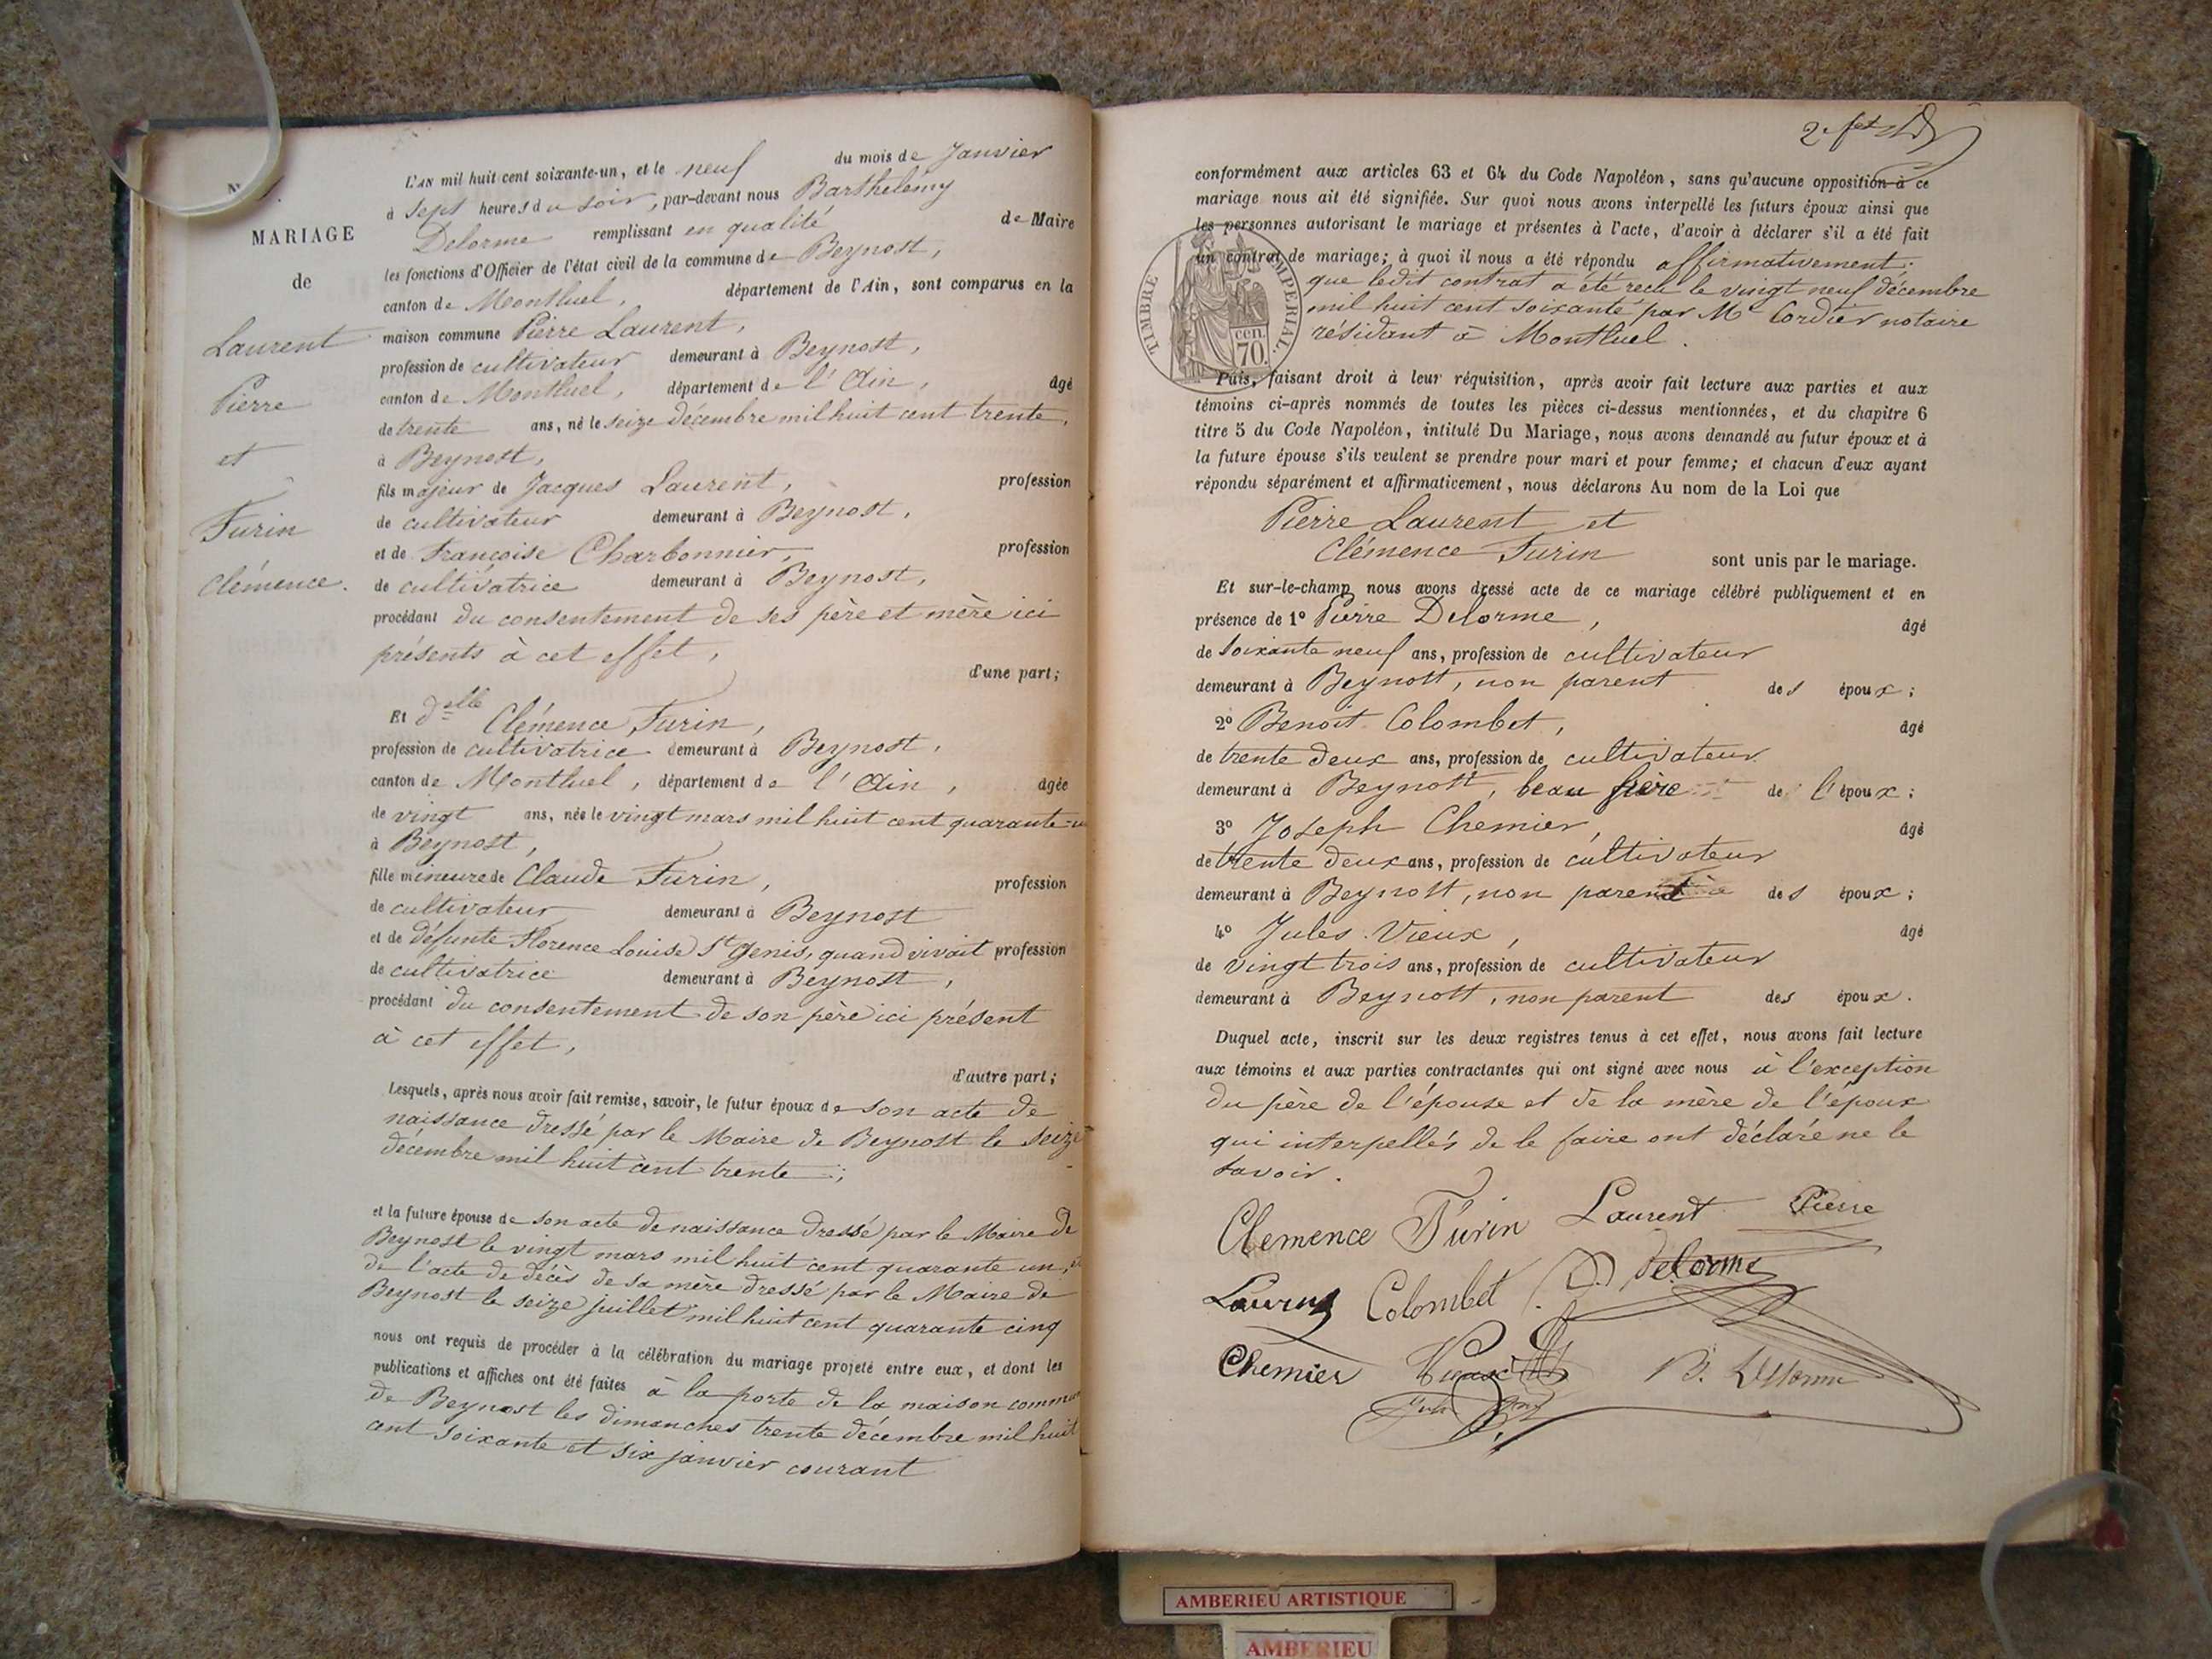 N
MARIAGE
de
Laurent
Pierre
et
Furin
Clémence.
L'AN mil huit cent soixante-un, et le neuf du mois de Janvier
à Sept heures du soir, par-devant nous Barthélemy
Delorme remplissant en qualité de Maire
les fonctions d'Officier de l'état civil de la commune de Beynost,
canton de Montluel, département de l'Ain, sont comparus en la
maison commune Pierre Laurent,
profession de cultivateur demeurant à Beynost,
canton de Montluel, département de l'Ain, âgé
de trente ans, né le seize decembre mil huit cent trente,
à Beynost,
fils majeur de Jacques Laurent, profession
de cultivateur demeurant à Beynost,
et de Françoise Charbonnier, profession
de cultivatrice demeurant à Beynost,
procédant du consentement de ses père et mère ici
présents à cet effet,
d'une part;
Et delle Clémence Furin,
profession de cultivatrice demeurant à Beynost,
canton de Montluel, département de l'Ain, âgée
de vingt ans, née le vingt mars mil huit cent quarante-un
à Beynost,
fille mineure de Claude Furin, profession
de cultivateur demeurant à Beynost
et de défunte Florence Louise St Genis, quand vivait profession
de cultivatrice demeurant à Beynost,
procédant du consentement de son père ici présent
à cet effet,
d'autre part;
Lesquels, après nous avoir fait remise, savoir, le futur époux de son acte de
naissance dressé par le Maire de Beynost le seize
décembre mil huit cent trente;
et la future épouse de son acte de naissance dressé par le Maire de
Beynost le vingt mars mil huit cent quarante un, et
de l'acte de décès de sa mère dressé par le Maire de
Beynost le seize juillet mil huit cent quarante cinq
nous ont requis de procéder à la célébration du mariage projeté entre eux, et dont les
publications et affiches ont été faites à la porte de la maison commune
de Beynost les dimanches trente décembre mil huit
cent soixante et six janvier courant
conformément aux articles 63 et 64 du Code Napoléon, sans qu'aucune opposition à ce
mariage nous ait été signifiée. Sur quoi nous avons interpellé les futurs époux ainsi que
les personnes autorisant le mariage et présentes à l'acte, d'avoir à déclarer s'il a été fait
un contrat de mariage; à quoi il nous a été répondu affirmativement;
que ledit contrat a été reçu le vingt neuf décembre
mil huit cent soixante par Me Cordier notaire
résidant à Montluel.
TIMBRE IMPERIAL
cen.
70.
Puis, faisant droit à leur réquisition, après avoir fait lecture aux parties et aux
témoins ci-après nommés de toutes les pièces ci-dessus mentionnées, et du chapitre 6
titre 5 du Code Napoléon, intitulé Du Mariage, nous avons demandé au futur époux et à
la future épouse s'ils veulent se prendre pour mari et pour femme; et chacun d'eux ayant
répondu séparément et affirmativement, nous déclarons Au nom de la Loi que
Pierre Laurent et
Clémence Furin sont unis par le mariage.
Et sur-le-champ nous avons dressé acte de ce mariage célébré publiquement et en
présence de 1º Pierre Delorme, âgé
de soixante neuf ans, profession de cultivateur
demeurant à Beynost, non parent des époux;
2º Benoit Colombet, âgé
de trente deux ans, profession de cultivateur
demeurant à Beynost, beau frère de l'époux;
3º Joseph Chemier, âgé
de trente deux ans, profession de cultivateur
demeurant à Beynost, non parent des époux;
4º Jules Vieux, âgé
de vingt trois ans, profession de cultivateur
demeurant à Beynost, non parent des époux.
Duquel acte, inscrit sur les deux registres tenus à cet effet, nous avons fait lecture
aux témoins et aux parties contractantes qui ont signé avec nous à l'exception
du père de l'épouse et de la mère de l'époux
qui interpellés de le faire ont déclaré ne le
savoir.
Clemence Furin Laurent Pierre
Laurent Colombet Delorme
Chemier B. Delorme
AMBERIEU ARTISTIQUE
AMBERIEU